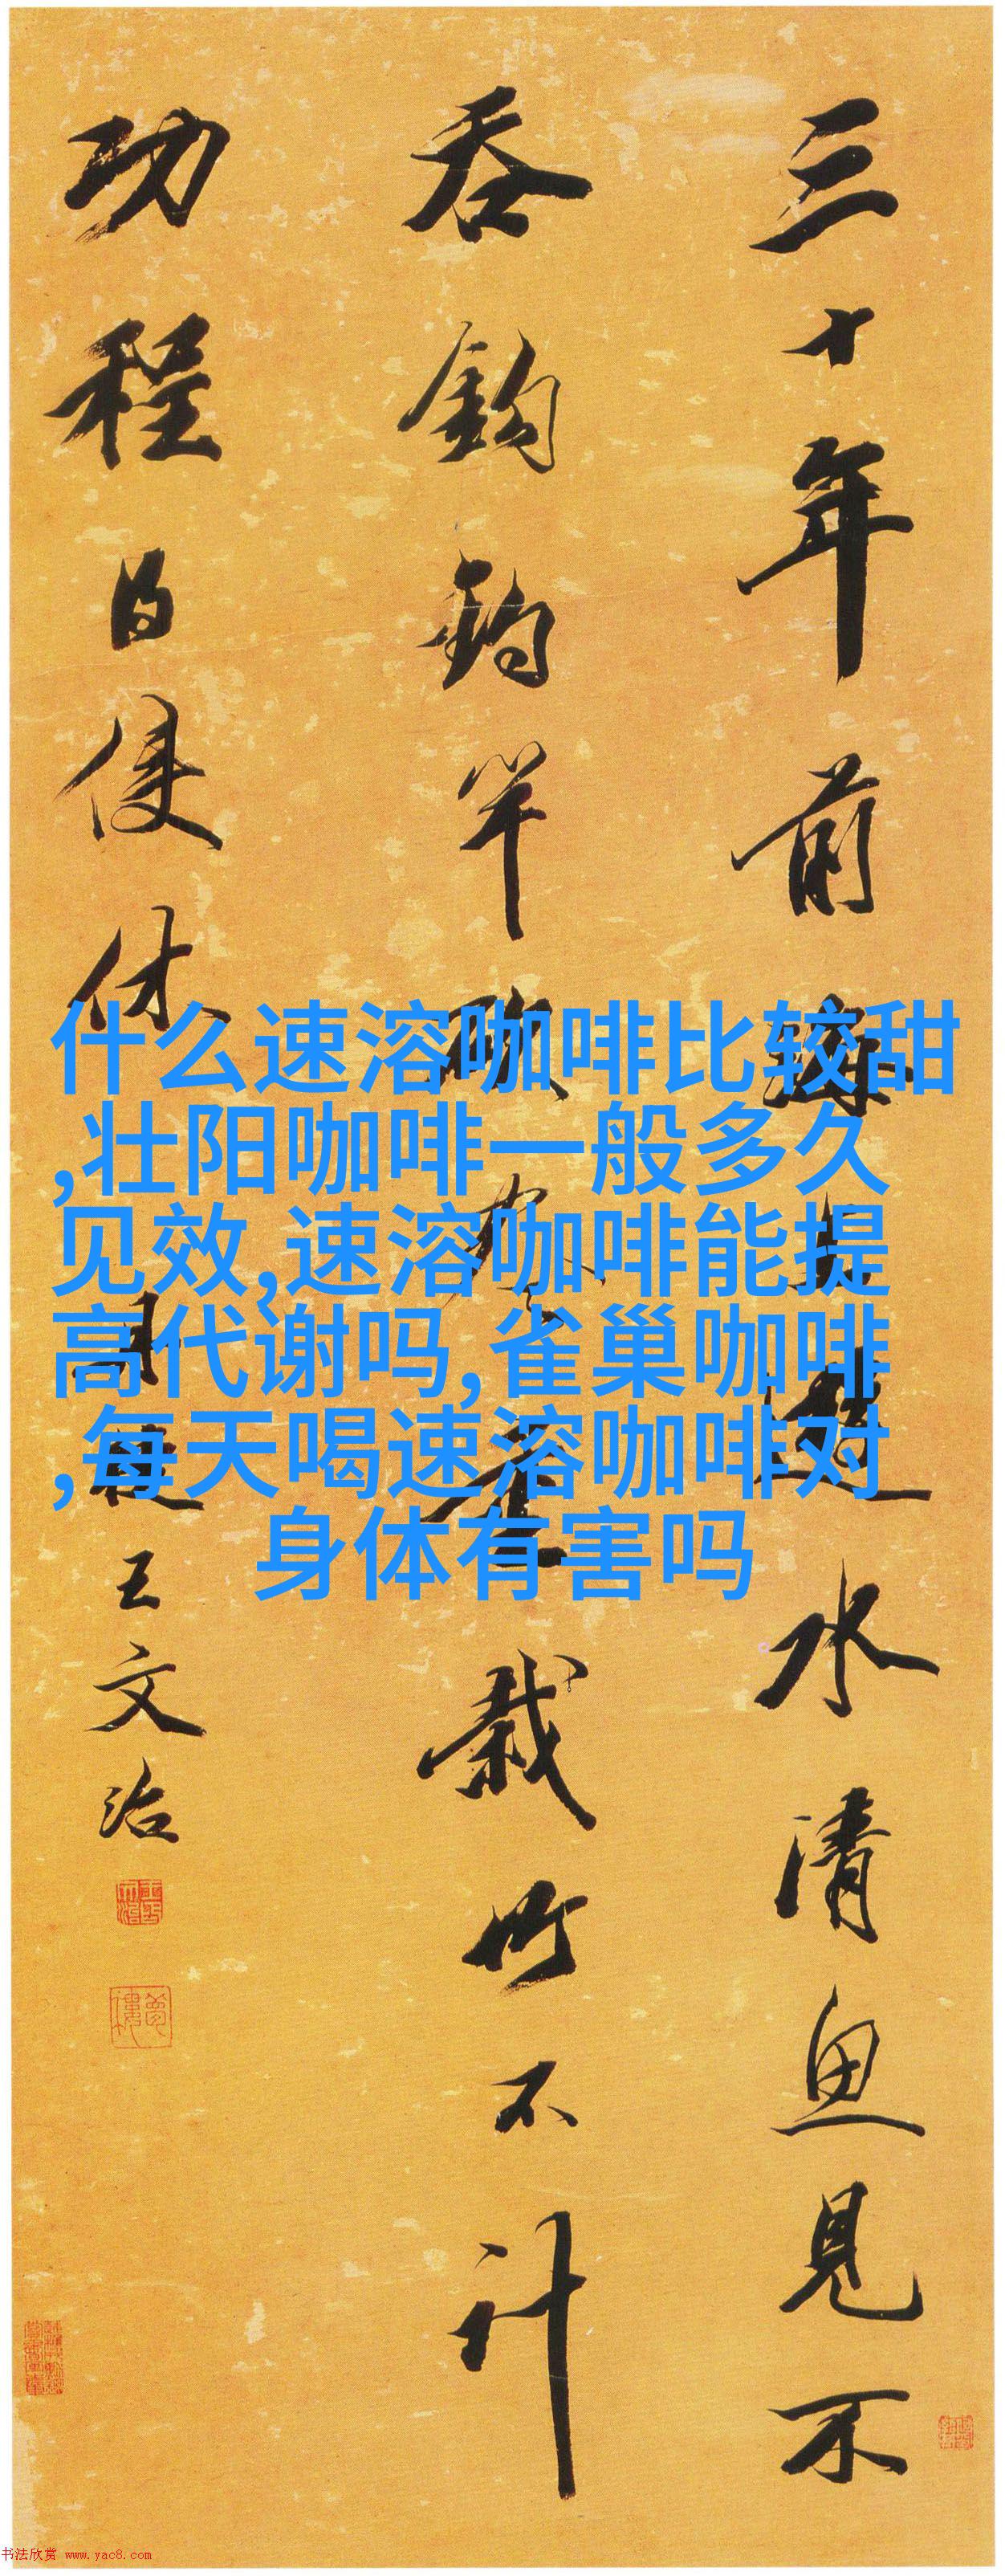 三十年前鍊
水清魚見不
吞鉤鉤竿
栽竹不計
功程日侵休
王文治
什么速溶咖啡比较甜
,壮阳咖啡一般多久
见效,速溶咖啡能提
高代谢吗,雀巢咖啡
,每天喝速溶咖啡对
身体有害吗
书法欣赏 www.yac8.com